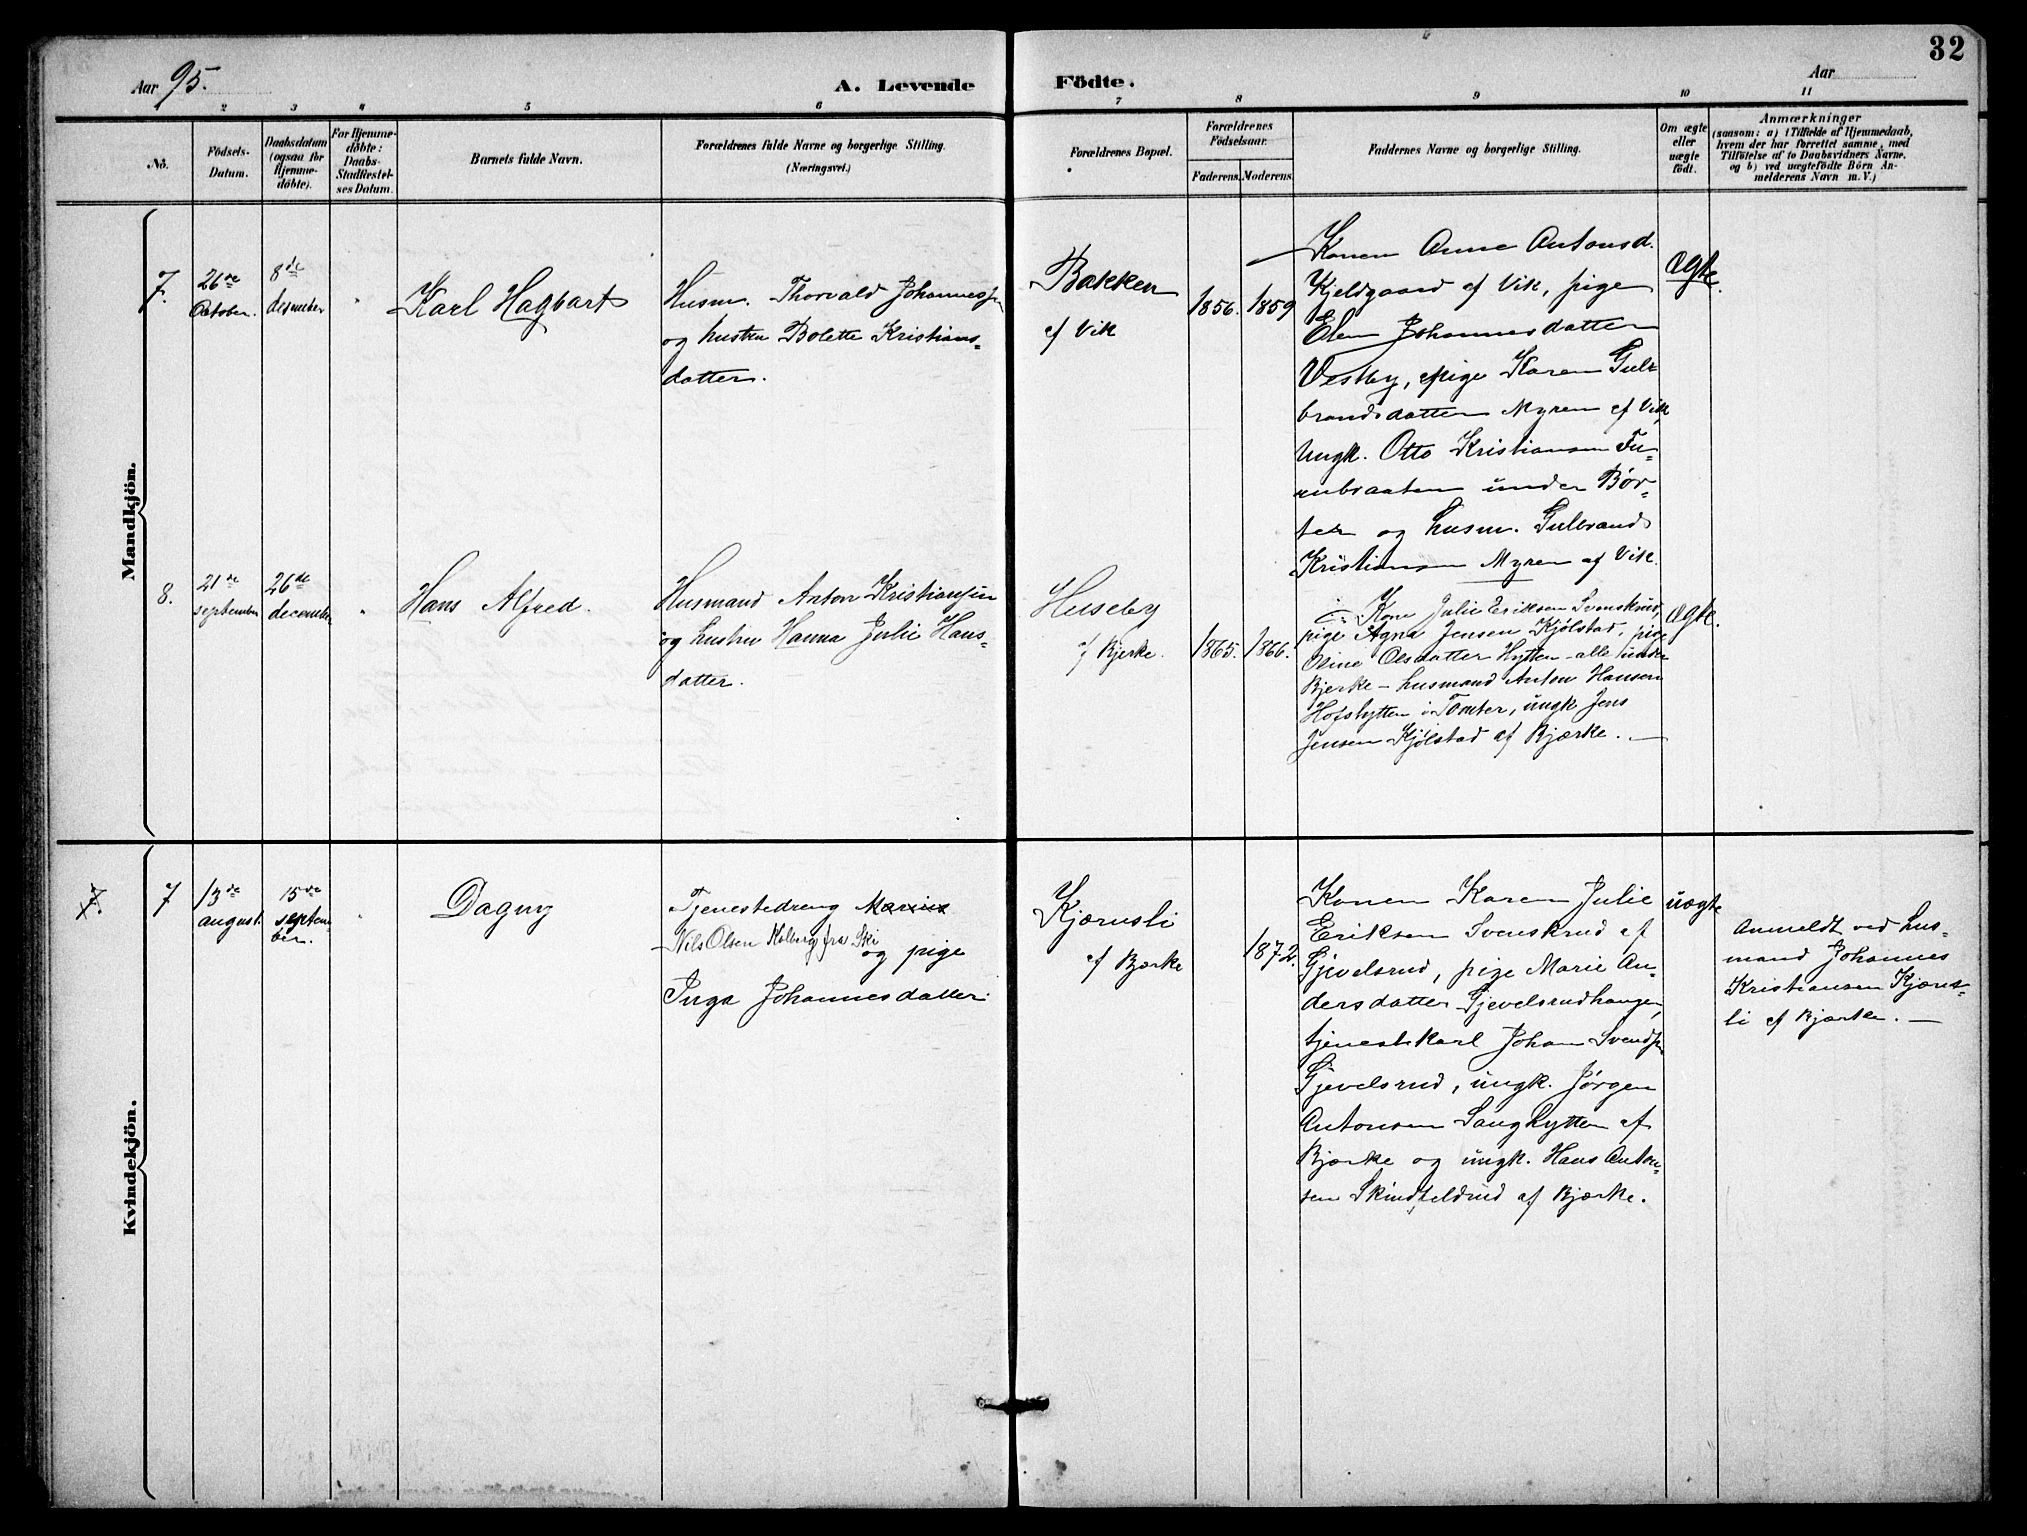 32
Aar 95.
A. Levende
Födte.
Aar
2 3 4 5 6 7 8 9 10 11
No.
Födsels-
Datum.
Daabsdatum
(ogsaa for
Hjemme-
döbte).
For Hjemme-
döbte:
Daabs-
Stadfæstel-
ses Datum.
Barnets fulde Navn.
Forældrenes fulde Navne og borgerlige Stilling.
(Næringsvei.)
Forældrenes Bopæl.
Forældrenes
Födselsaar.
Faderens. Moderens.
Faddernes Navne og borgerlige Stilling.
Om ægte
eller
uægte
födt.
Anmærkninger
(saasom: a) i Tilfælde af Hjemmedaab,
hvem der har forrettet samme, med
Tilföielse af to Daabsvidners Navne,
og b) ved uægtefödte Börn An-
melderens Navn m. V.)
Mandkjön.
7.
26de
October.
8de
desember
"
Karl Hagbart
Husm. Thorvald Johannessen
og hustru Bolette Kristians-
datter.
Bakken
af Vik
1856.
1859
Konen Anne Antonsd.
Kjeldgaard af Vik, pige
Elen Johannesdatter
Vestby, pige Karen Gul-
brandsdatter Myren af Vik,
Ungk. Otto Kristiansen Fu-
rubraaten under Bør-
ter og husm. Gulbrand
Kristiansen Myren af Vik.
ægte.
8.
21de
september
26de
december
"
Hans Alfred.
Husmand Anton Kristiansen
og hustru Hanna Julie Hans-
datter.
Huseby
af Bjerke.
1865.
1866.
Kone Julie Eriksen Svenskrud,
pige Agna Jensen Kjølstad, pige
Oline Olsdatter Hytten – alle under
Bjerke – husmand Anton Hansen
Hofshytten i Tomter, ungk. Jens
Jensen Kjølstad af Bjærke. —
ægte.
Kvindekjön.
7.
7
13de
august.
15de
septem-
ber.
"
Dagny
Tjenestedreng Marius
Nils Olsen Kolberg fra Ski
og pige
Inga Johannesdatter
Kjærnsli
af Bjærke
1872.
Konen Karen Julie
Eriksen Svenskrud af
Gjevelsrud, pige Marie An-
dersdatter Gjevelsrudhaugen,
tjenestekarl Johan Svendsen
Gjevelsrud, ungk. Jørgen
Antonsen Saughytten af
Bjærke og ungk. Hans Anton-
sen Skindfeldrud af Bjærke.
uægte
Anmeldt ved hus-
mand Johannes
Kristiansen Kjærns-
li af Bjærke. —